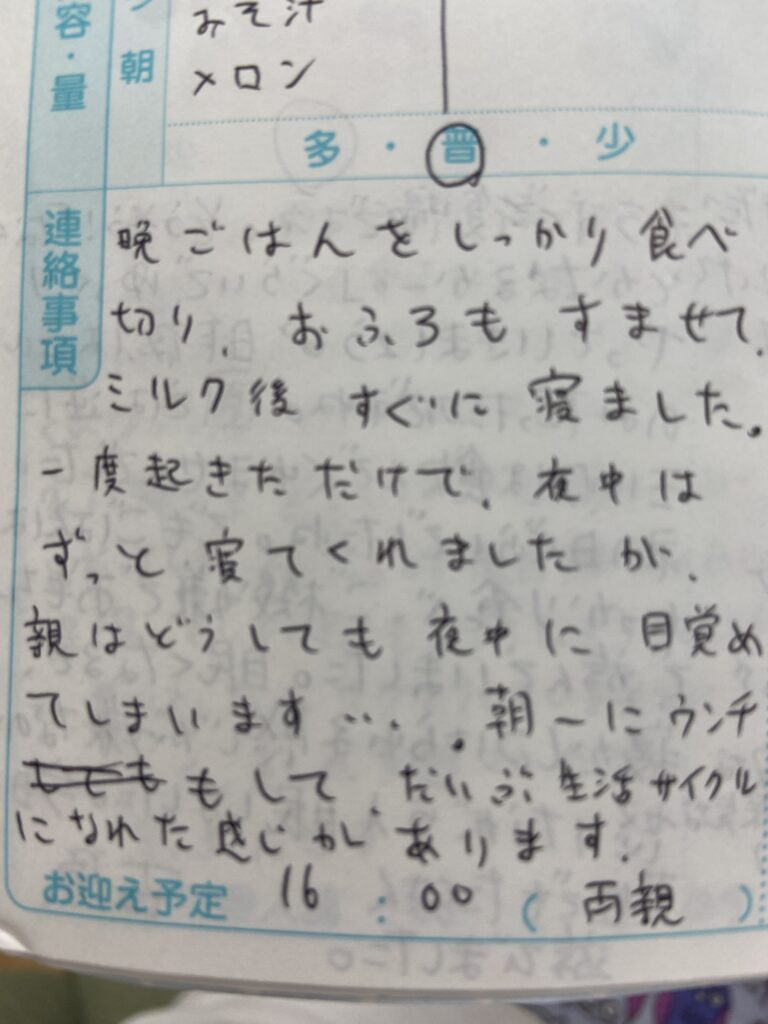 容・量
朝
みそ汁
メロン
多・普・少
連絡事項
晩ごはんをしっかり食べ
切り、おふろもすませて、
ミルク後すぐに寝ました。
一度起きただけで、夜中は
ずっと寝てくれましたが、
親はどうしても夜中に目覚め
てしまいます…。朝一にウンチ
もして、だいぶ生活サイクル
になれた感じがあります。
お迎え予定 16:00(両親)